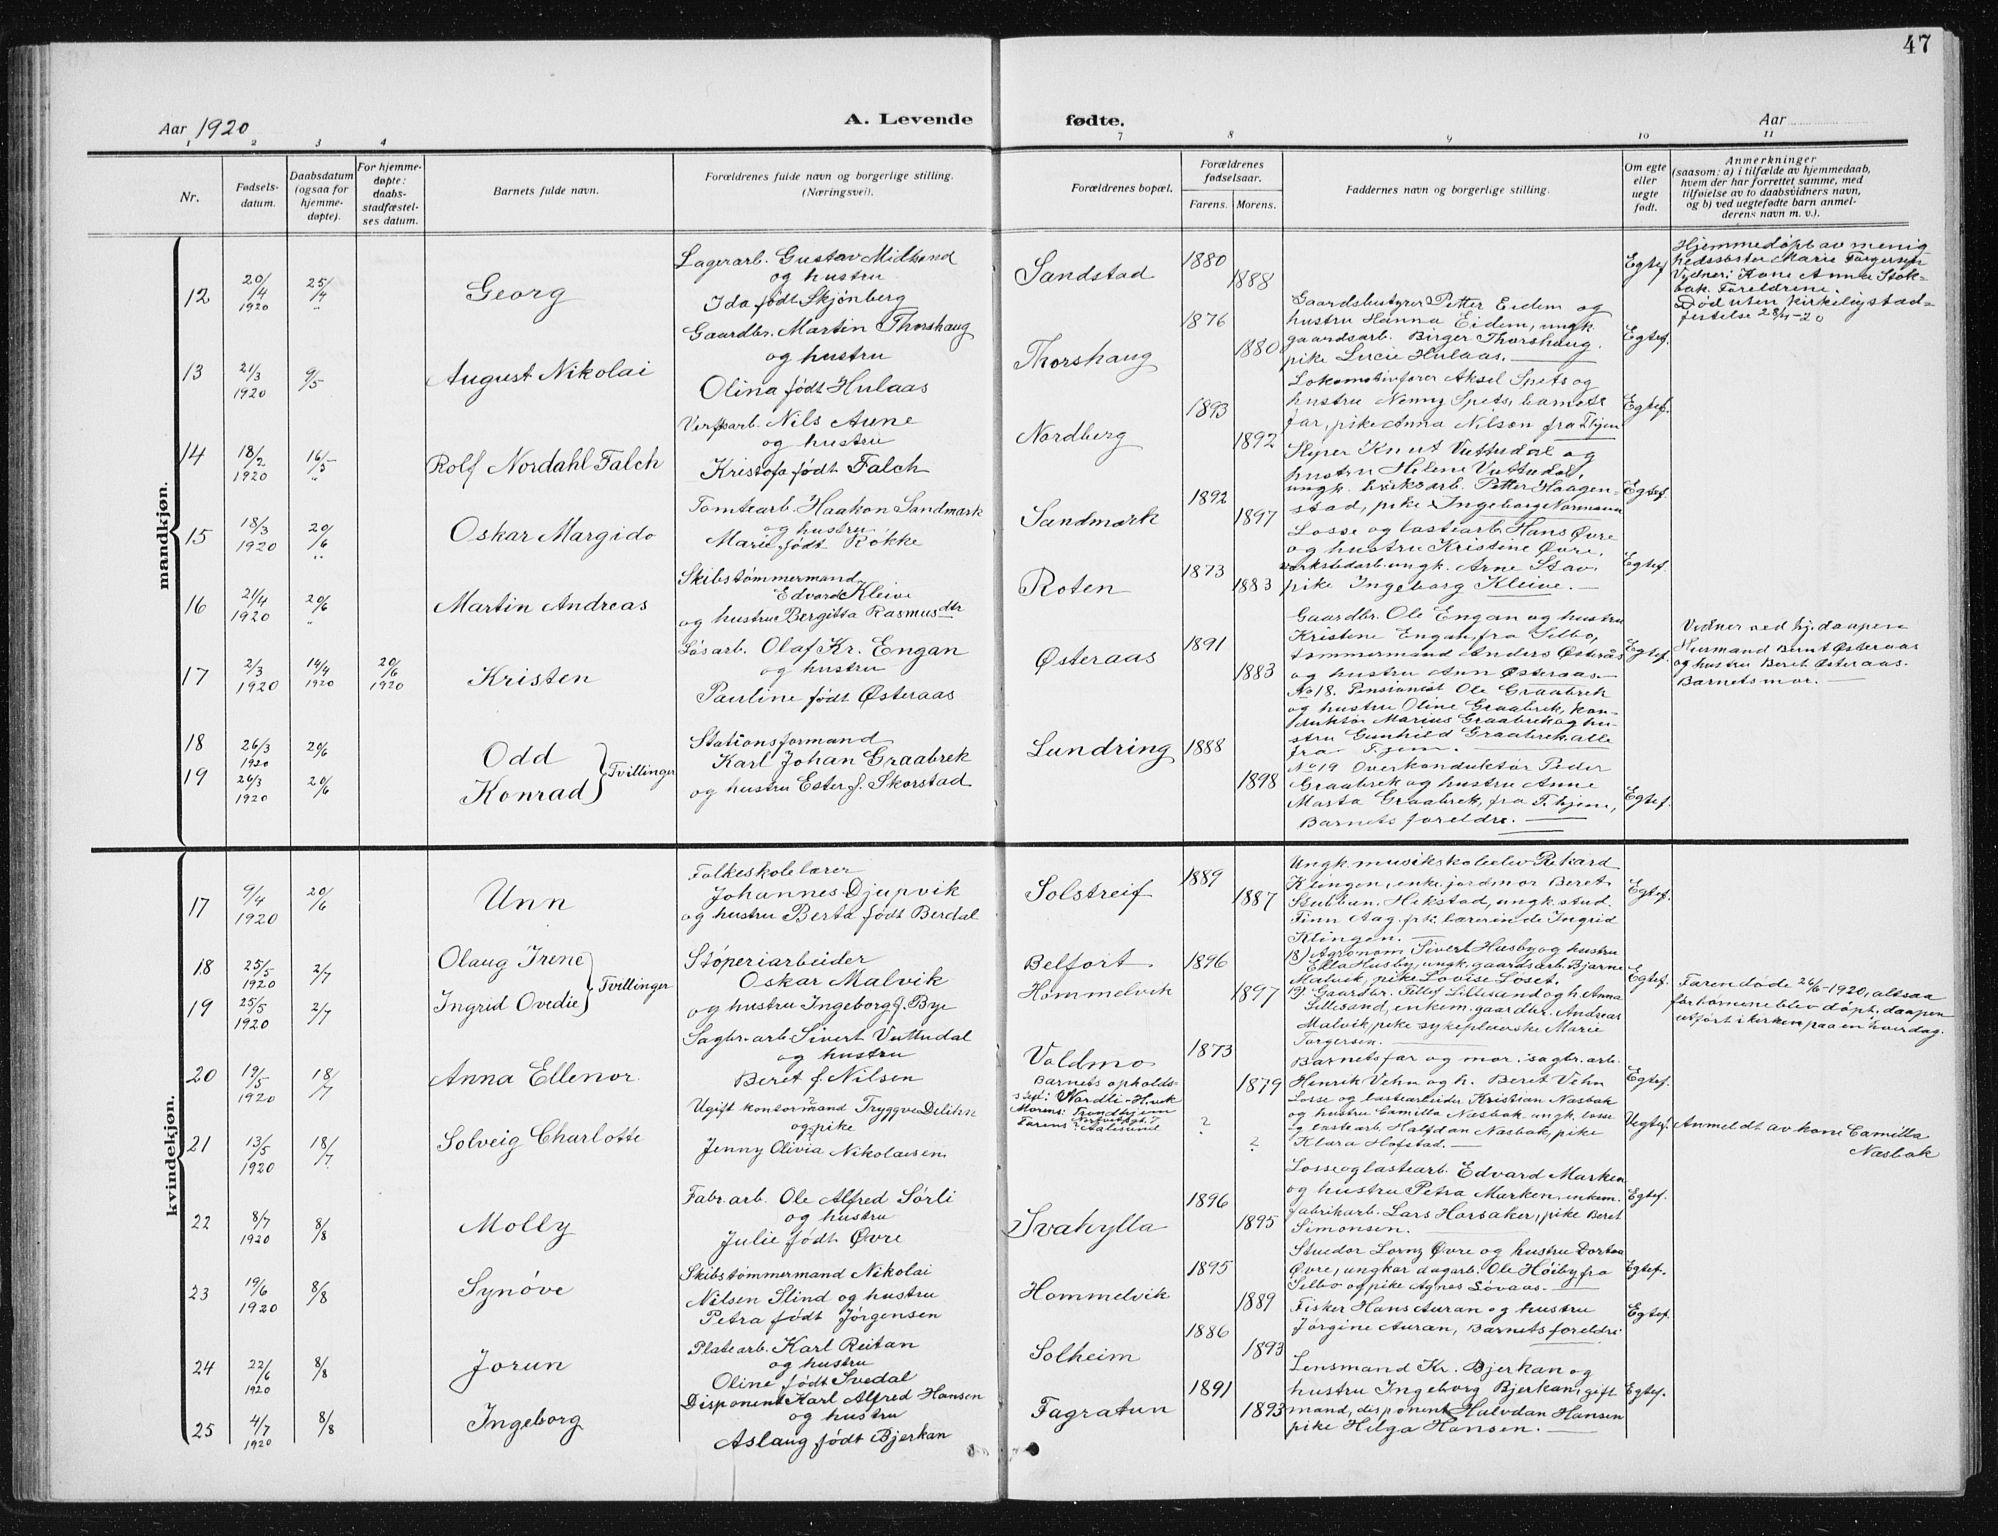 47
Aar 1920
A. Levende fødte.
Aar
1 2 3 4 7 8 9 10 11
Nr.
Fødsels-
datum.
Daabsdatum
(ogsaa for
hjemme-
døpte).
For hjemme-
døpte:
daabs-
stadfæstel-
ses datum.
Barnets fulde navn.
Forældrenes fulde navn og borgerlige stilling.
(Næringsvei).
Forældrenes bopæl.
Forældrenes
fødselsaar.
Farens. Morens.
Faddernes navn og borgerlige stilling.
Om egte
eller
uegte
født.
Anmerkninger
(saasom: a) i tilfælde av hjemmedaab,
hvem der har forrettet samme, med
tilføielse av to daabsvidners navn,
og b) ved uegtefødte barn anmel-
derens navn m. v.).
mandkjøn.
12
20/4 1920
25/4 "
Georg
Lagerarb. Gustav Midtsand
og hustru
Ida født Skjønberg
Sandstad
1880
1888
Egtef.
Hjemmedøpt av menig
hedssøster Marie Torgersen
Vidner: Kone Anna Stok-
bak. Foreldrene.
Død uten kirkelig stad-
festelse 28/4-20
13
21/3 1920
9/5
August Nikolai
Gaardbr. Martin Thorshaug
og hustru
Olina født Hulaas
Thorshaug
1876
1880
Gaardsbestyrer Petter Eidem og
hustru Hanna Eidem, ungk.
gaardsarb. Birger Thorshaug.
pike Lucie Hulaas.
Egtef.
14
18/2 1920
16/5 "
Rolf Nordahl Falch
Verftsarb. Nils Aune
og hustru
Kristofa født Falch
Nordberg
1893
1892
Lokomotivfører Aksel Spets og
hustru Nenny Spets, barnets
far, pike Anna Nilsen fra T.hjem
Egtef.
15
18/3 1920
20/6 "
Oskar Margido
Tomtearb. Haakon Sandmark
og hustru
Marie født Røkke
Sandmark
1892
1897
Skiper Knut Vuttudal og
hustru Helene Vuttudal,
ungk. bruksarb. Petter Haagen-
stad, pike Ingeborg Normann
Egtef.
16
21/4 1920
20/6 "
Martin Andreas
Skibstømmermand
Edvard Kleive
og hustru Bergitta Rasmusdtr
Roten
1873
1883
Losse og lastearb. Hans Øvre
og hustru Kristine Øvre,
verkstedarb. ungk. Arne Stav.
pike Ingeborg Kleive.
Egtef.
17
2/3 1920
14/4 1920
20/6 1920
Kristen
Løsarb. Olaf Kr. Engan
og hustru
Pauline født Østeraas
Østeraas
1891
1883
Gaardbr. Ole Engan og hustru
Kristine Engan, fra Selbo,
tømmermand Anders Østeraas
og hustru Ann Østeraas.
Egtef.
Vidner ved hj.daapen:
Husmand Bernt Østeraas
og hustru Beret Østeraas.
Barnets mor.
18
26/3 1920
20/6
Odd
19
26/3 1920
20/6
Konrad
Tvillinger
Stationsformand
Karl Johan Graabrek
og hustru Ester f. Skorstad
Lundring
1888
1898
No 18. Pensionist Ole Graabrek
og hustru Oline Graabrek, kon-
duktør Marius Graabrek og hu-
stru Gunhild Graabrek alle
fra T.hjem.
No 19 Overkonduktør Peder
Graabrek og hustru Anne
Marta Graabrek, fra T.hjem,
Barnets foreldre.
Egtef.
kvindekjøn.
17
9/4 1920
20/6
Unn
Folkeskolelærer
Johannes Djupvik
og hustru Berta født Berdal
Solstreif
1889
1887
Ungk. musikskoleelev Rikard
Klingen, enke jordmor Beret
Stubban. Hikstad, ungk. stud.
Finn Aag. pk. lærerinde Ingrid
Klingen.
Egtef.
18
25/5 1920
2/7
Olaug Irene
19
25/5 1920
2/7
Ingrid Ovedie
Tvillinger
Støperiarbeider
Oskar Malvik
og hustru Ingeborg f. Bye
Belfort
Hommelvik
1896
1897
18) Agronom Sivert Husby og hustru
Ella Husby, ungk. gaardsarb. Bjarne
Malvik, pike Lovise Løset.
19) Gaardbr. Tellef Lillesand og h. Anna
Lillesand, enkem. gaardbr. Andreas
Malvik, pike sykepleierske Marie
Torgersen.
Egtef.
Faren døde 26/6-1920, altsaa
før barnene blev døpt, daapen
utført i kirken paa en hverdag.
20
19/5 1920
18/7
Anna Ellenor
Sagbr. arb. Sivert Vuttudal
og hustru
Beret f. Nilsen
Voldmo
1873
1879
Barnets far og mor. sagbr. arb.
Henrik Vehn og h. Beret Vehn
Egtef.
21
13/5 1920
18/7
Solveig Charlotte
Ugift kontormand Tryggve Delihn
og pike
Jenny Olivia Nikolaisen
Barnets opholds-
sted: Nordli-H.vik
Morens: Trondhjem
Farens: Aalesund
?
?
Losse og lastearbeider Kristian Næsbak
og hustru Camilla Næsbak, ungk. losse
og lastearb. Halfdan Næsbak, pike
Klara Hofstad.
Uegtef.
Anmeldt av kone Camilla
Næsbak
22
8/7 1920
8/8
Molly
Fabr. arb. Ole Alfred Sørli
og hustru
Julie født Øvre
Svahylla
1896
1895
Losse og lastearb. Edvard Marken
og hustru Petra Marken, enkem.
fabrikarb. Lars Horsaker, pike Beret
Simonsen.
Egtef.
23
19/6 1920
8/8
Synøve
Skibstømmermand Nikolai
Nilsen Slind og hustru
Petra født Jørgensen
Hommelvik
1895
1889
Stuedor Lornz Øvre og hustru Dortea
Øvre, ungkar dagarb. Ole Høiby fra
Selbo og pike Agnes Løvaas.
Egtef.
24
22/6 1920
8/8
Jorun
Platearb. Karl Reitan
og hustru
Oline født Svedal
Solheim
1886
1893
Fisker Hans Auran og hustru
Jørgine Auran, Barnets foreldre
Egtef.
25
4/7 1920
8/8
Ingeborg
Disponent Karl Alfred Hansen
og hustru
Aslaug født Bjerkan
Fagratun
1891
1893
Lensmand Kr. Bjerkan og
hustru Ingeborg Bjerkan, gift
mand, disponent Halvdan Hansen
pike Helga Hansen.
Egtef.